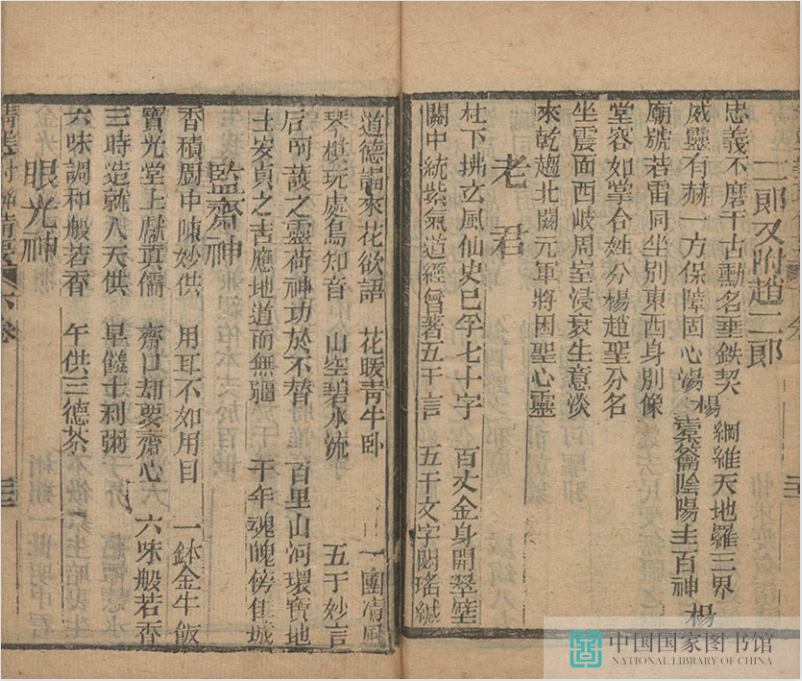 二郎又附趙二郎
忠義不磨千古勳名垂鉄契 綱維天地羅三界
威靈有赫一方保障固心湯 楊 橐籥陰陽主百神 楊
廟號若雷同坐別東西身別像
堂容如掌合姓分楊趙聖分名
坐震面西岐周室浸衰生意淡
來乾趨北闕元軍將困聖心靈
老君
柱下拂玄風仙史已孚七十字 百丈金身開翠壁
關中統紫氣道經曾著五千言 五千文字閟瑤緘
道德謳來花欲語 花暖靑牛臥 一團清風
琴棋玩處鳥知音 山空碧水流 五千妙言
后司護之靈荷神功於不替 百里山河環寶地
土安貞之吉應地道而無疆 千年魂魄傍佳城
監齋神
香積厨中陳妙供 用耳不如用目 一鉢金牛飯
寳光堂上獻真儒 齋口却要齋心 六味般若香
三時造就人天供 早饈士利粥
六味調和般若香 午供三德茶
眼光神
六卷
中国国家图书馆
NATIONAL LIBRARY OF CHINA